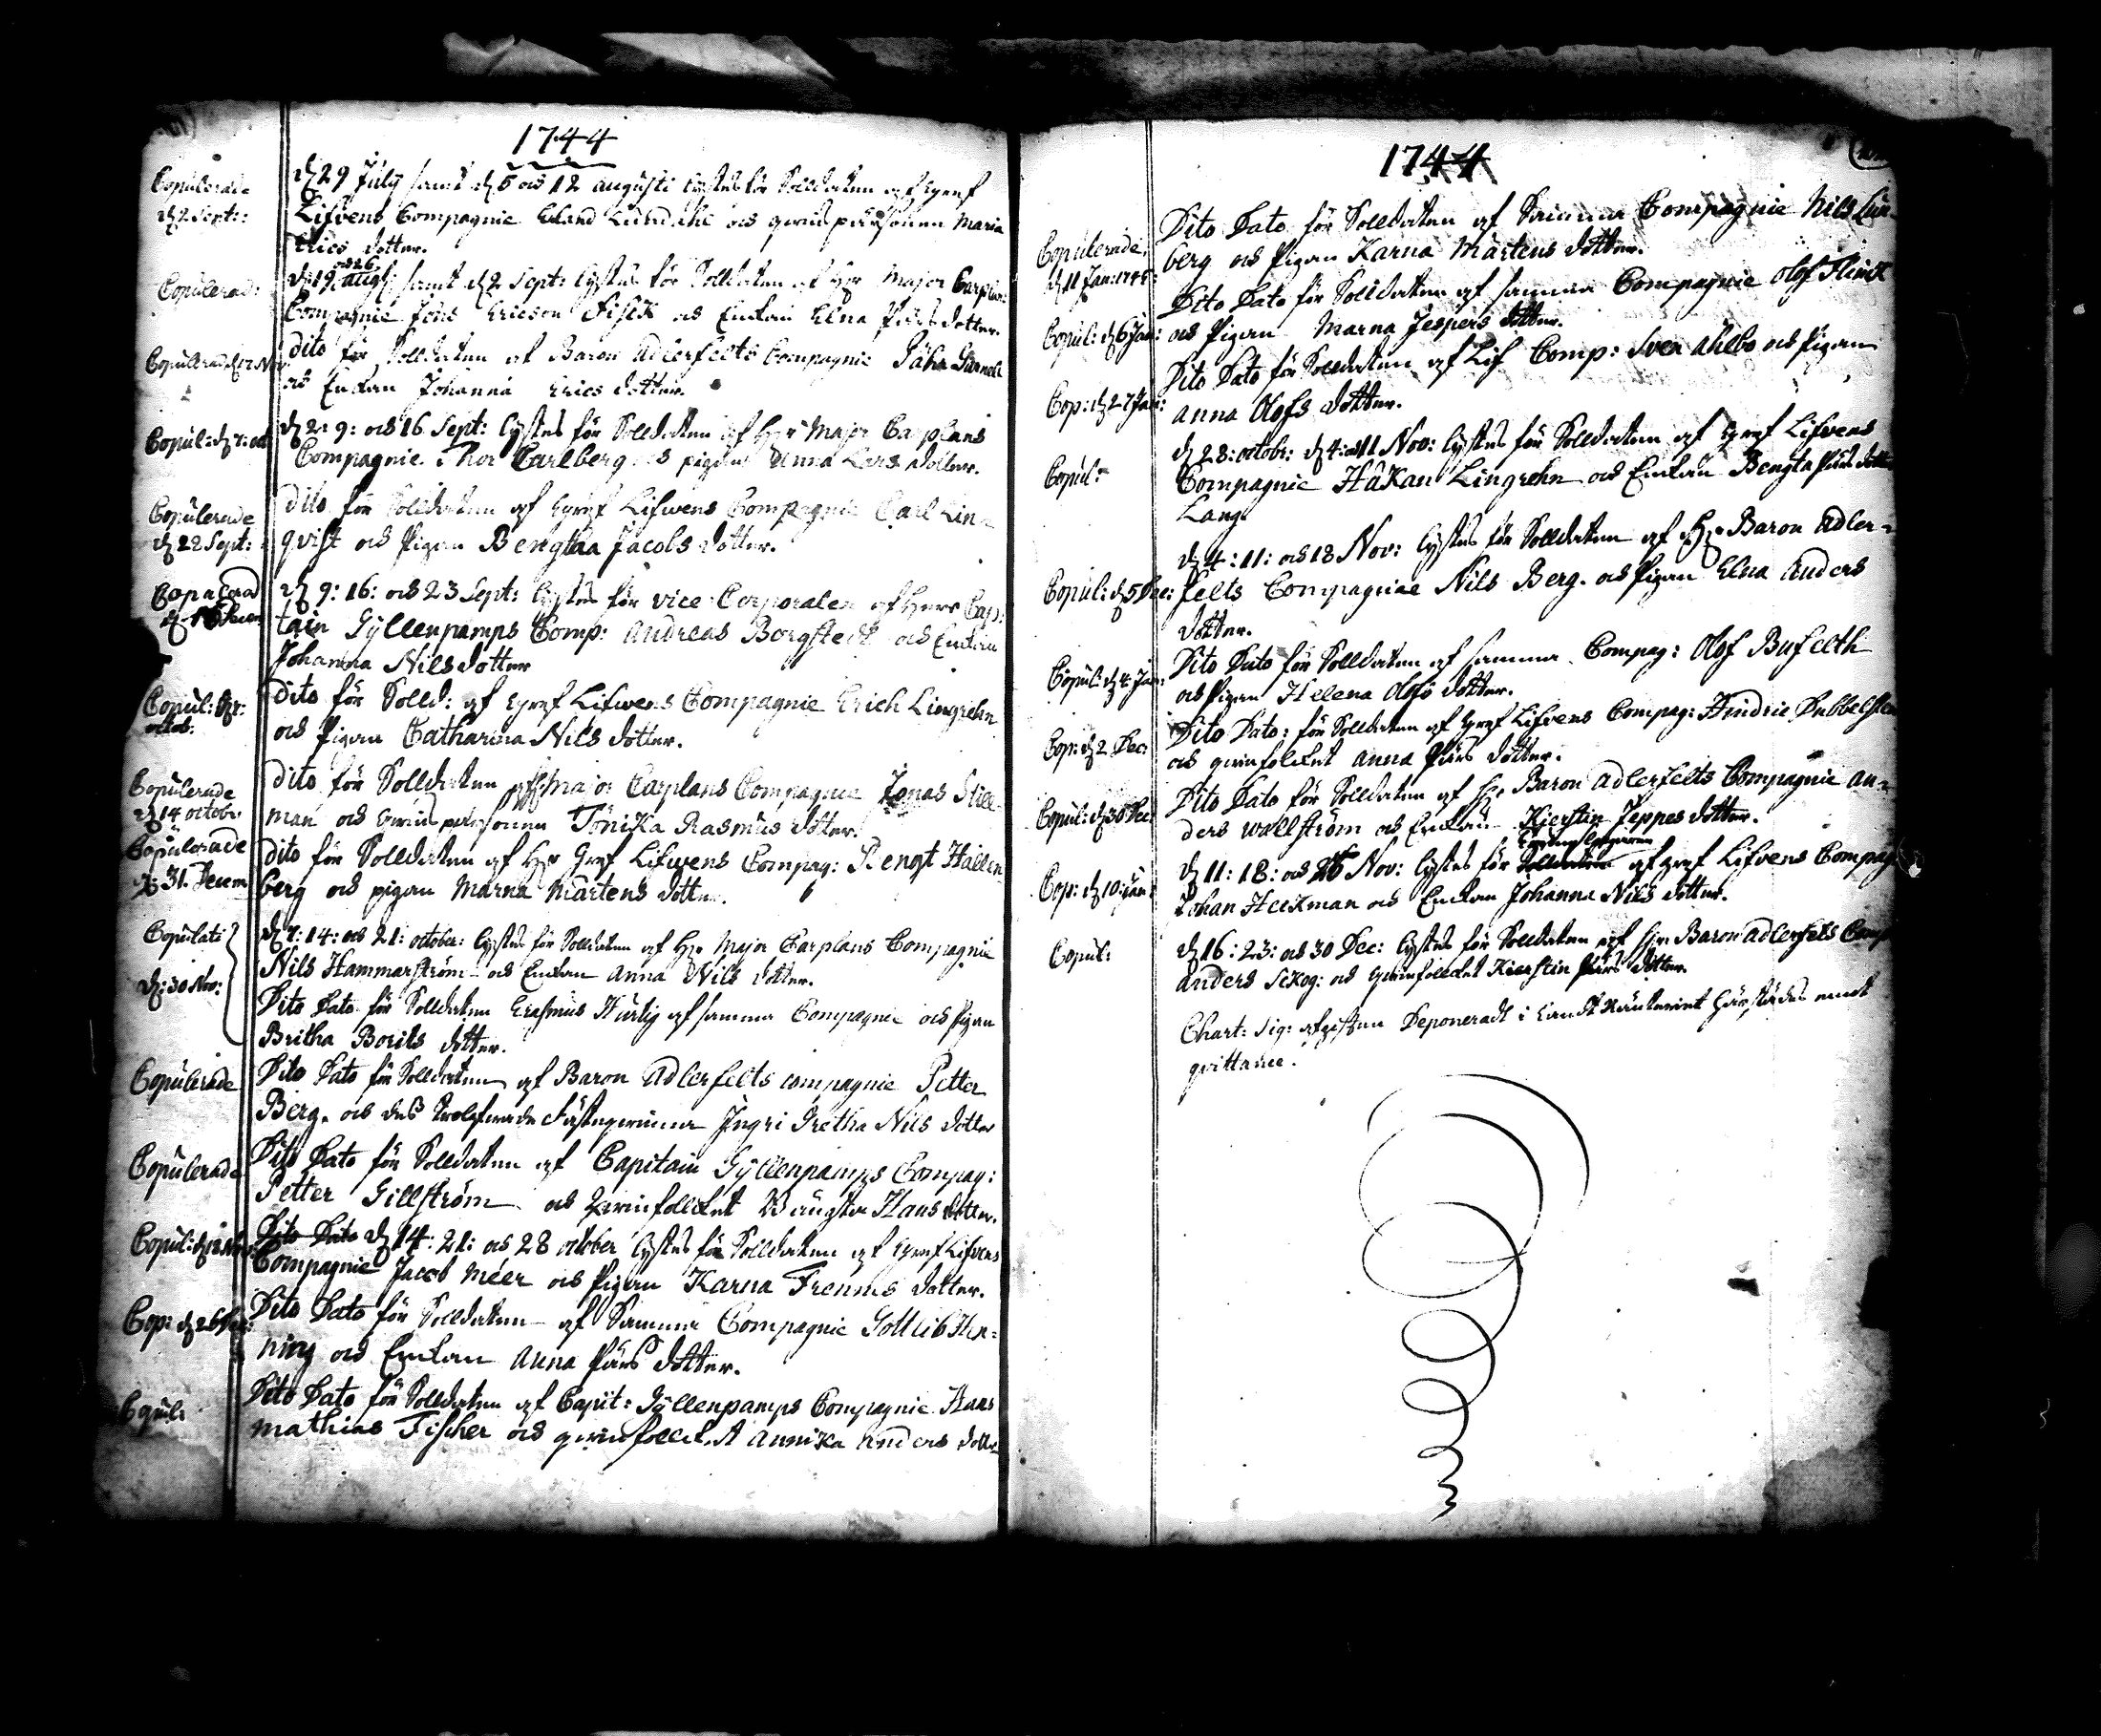 1744
Copulerade
d 2 Sept:
d 29 July samt d 5 och 12 Augusti lystes för Solldaten af Gref
Lifvens Compagnie Erland och qwinspersonen Maria
Erics dotter.
Copulerad:
och 26
d: 19. Aug: samt d 2 Sept: lystes för Solldaten af Hr Major Carplans
Compagnie Jöns Ericson Fisck och Enckan Elna Pärs dotter.
Copulerad d 12 Nov:
dito för Solldaten af Baron Adlerfelts Compagnie
och Enckan Johanna Erics dotter.
Copul: d 7: oct
d 2: 9: och 16 Sept: lystes för Solldaten af Hr Major Carplans
Compagnie Thor Carlberg och pigan Anna Lars dotter.
Copulerade
d 22 Sept:
dito för Solldaten af Gref Lifwens Compagnie Carl Lin=
qvist och Pigan Bengtha Jacobs dotter.
Copulerad
d 9: 16: och 23 Sept: lystes för vice Corporalen af Herr Cap:
tain Gyllenpamps Comp: Andreas Borgstedt och Enckan
Johanna Nilsdotter
Copul:
octob:
dito för Solld: af Gref Lifwens Compagnie Erich Lingrehn
och Pigan Catharina Nils dotter.
Copulerade
d 14 octobr:
dito för Solldaten af Major Carplans Compagnie Jonas Still=
man och qwinspersonen Tönika Rasmus dotter.
Copulerade
d: 31. Decem
dito för Solldaten af Hr Gref Lifwens Compag: Bengt Hallen=
berg och pigan Marna Mårtens dotter.
Copulati
d: 30 Nov:
d 7: 14: och 21: october: lystes för Solldaten af Hr Major Carplans Compagnie
Nils Hammarström och Enckan Anna Nils dotter.
Dito Dato för Solldaten Erasmus Hurtig af samma Compagnie och Pigan
Britha Borils dotter.
Copulerade
Dito Dato för Solldaten af Baron Adlerfelts compagnie Petter
Berg. och des trolofwade Fästeqwinna Ingri Gretha Nils dotter
Copulerade
Dito Dato för Solldaten af Capitain Gyllenpamps Compag:
Petter Gillström och qwinfolcket Bängta Hans dotter.
Copul: d 12 Nov:
Dito Dato d 14: 21: och 28 october lystes för Solldaten af Gref Lifvens
Compagnie Jacob Méer och Pigan Karna Frennis dotter.
Cop: d 26 Dec:
Dito Dato för Solldaten af Samma Compagnie Gottlib Hen=
ning och Enckan Anna Pärs dotter.
Copul:
Dito Dato för Solldaten af Capit: Gyllenpamps Compagnie Hans
Mathias Fischer och qwinfolcket Annika Anders dotter
1744
Copulerade,
d 11 Jan: 1745:
Dito Dato för Solldaten af Samma Compagnie Nils Lin=
berg och Pigan Karna Mårtens dotter.
Copul: d 6 Jan:
Dito Dato för Solldaten af samma Compagnie Olof Flinck
och Pigan Marna Jespers dotter.
Cop: d 27 Jan:
Dito Dato för Solldaten af Lif Comp: Sven Ahlbo och Pigan
Anna Olofs dotter.
Copul:
d 28: octobr: d 4: och 11 Nov: lystes för Solldaten af Gref Lifvens
Compagnie Håkan Lingrehn och Enckan Bengta Pärs dotter
Lang.
Copul: d 5 Dec:
d 4: 11: och 18 Nov: lystes för Solldaten af Hr Baron Adler=
felts Compagniae Nils Berg. och Pigan Elna Anders
dotter.
Copul: d 4: Jan:
Dito Dato för Solldaten af samma Compag: Olof Bufelth
och Pigan Helena Olofs dotter.
Cop: d 2. Dec:
Dito Dato: för Solldaten af Gref Lifvens Compag: Hindric Dubbelsten
och qwinfolcket Anna Pärs dotter.
Copul: d 30 Dec:
Dito Dato för Solldaten af Hr Baron Adlerfelts Compagnie An=
ders Wallström och Enckan Kierstin Jeppes dotter.
Cop: d 10: Jan:
d 11: 18: och 25 Nov: lystes för Solldaten af Gref Lifvens Compag:
Johan Heckman och Enckan Johanna Nils dotter.
Copul:
d 16: 23: och 30 Dec: lystes för Solldaten af Hr Baron Adlerfelts Comp
Anders Skog: och qwinfolcket Kierstin Pärs dotter.
Chart: Sig: afgiften Deponeradt i Landt Ränteriet härstädes emot
qvittance.